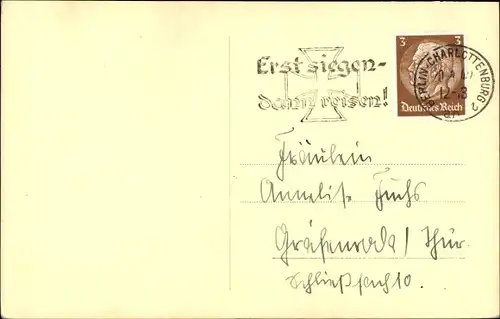 Erst siegen-
dann reisen!
3 3
Deutsches Reich
BERLIN-CHARLOTTENBURG 2
12-13
Fräulein
Annelise Fuchs
Gräfenroda / Thür.
Schließfach 10.